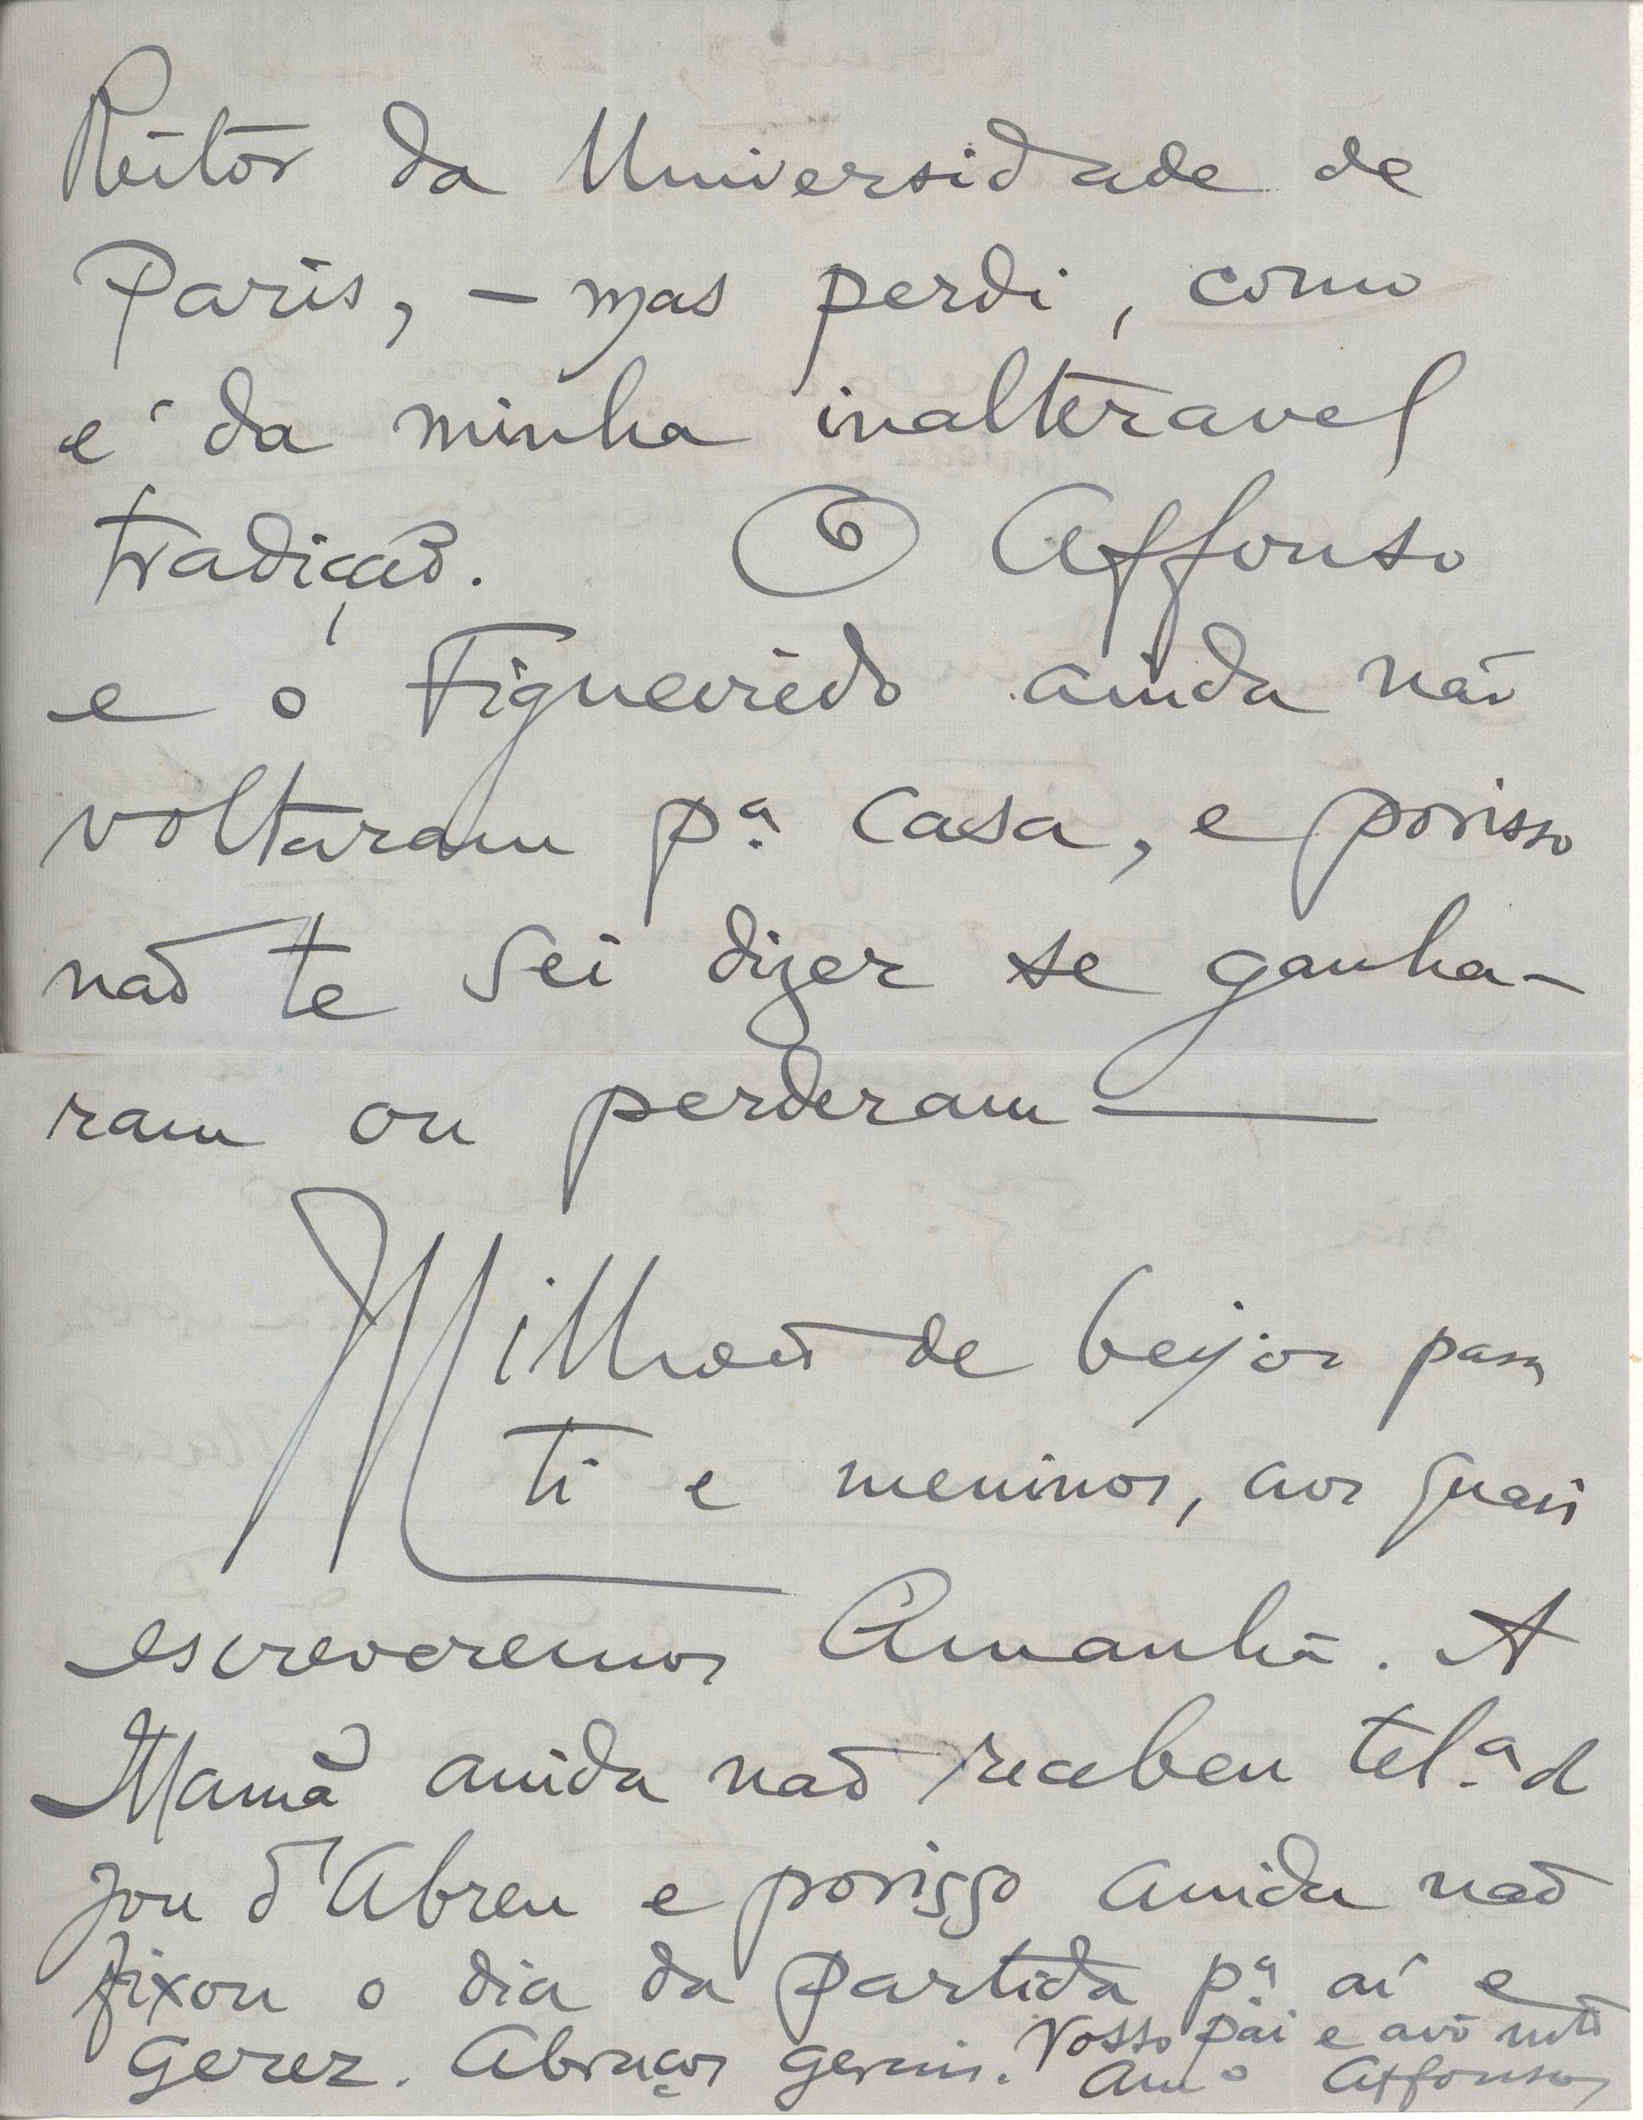 Reitor da Universidade de
Paris, – mas perdi, como
é da minha inalteravel
tradição. O Affonso
e o Figueirêdo ainda não
voltaram pª casa, e porisso
não te sei dizer se ganha-
ram ou perderam —
Milhões de beijos para
ti e meninos, aos quais
escreveremos Amanhã. A
Mamã ainda não recebeu tel.ª d
d'Abreu e porisso ainda não
fixou o dia da partida pª aí e
Gerez. Abraços gerais. Vosso pai e avô mtº
Amº Affonso